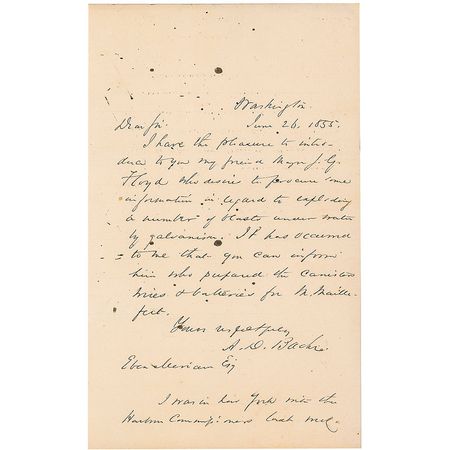 Washington
June 26, 1855.
Dear Sir.
I have the pleasure to intro-
duce to you my friend Major J. G.
Floyd who desires to procure some
information in regard to exploding
a number of blasts under water
by galvanism. It has occurred
to me that you can inform
him who prepared the canisters
wires & batteries for M. Maille-
fert.
Yours respectfully
A. D. Bache
Eben Meriam Esq
I was in New York with the
Harbor Commissioners last week.